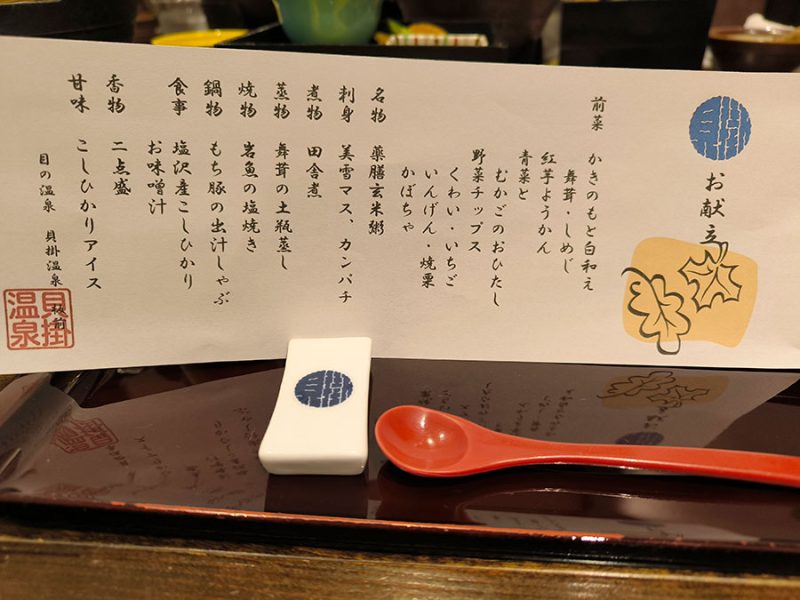 貝掛
お献立
前菜　かきのもと白和え
舞茸・しめじ
紅芋ようかん
青菜と
むかごのおひたし
野菜チップス
くわい・いちご
いんげん・焼栗
かぼちゃ
名物　薬膳玄米粥
刺身　美雪マス、カンパチ
煮物　田舎煮
蒸物　舞茸の土瓶蒸し
焼物　岩魚の塩焼き
鍋物　もち豚の出汁しゃぶ
食事　塩沢産こしひかり
お味噌汁
香物　二点盛
甘味　こしひかりアイス
目の温泉　貝掛温泉　板前
貝掛温泉
貝掛